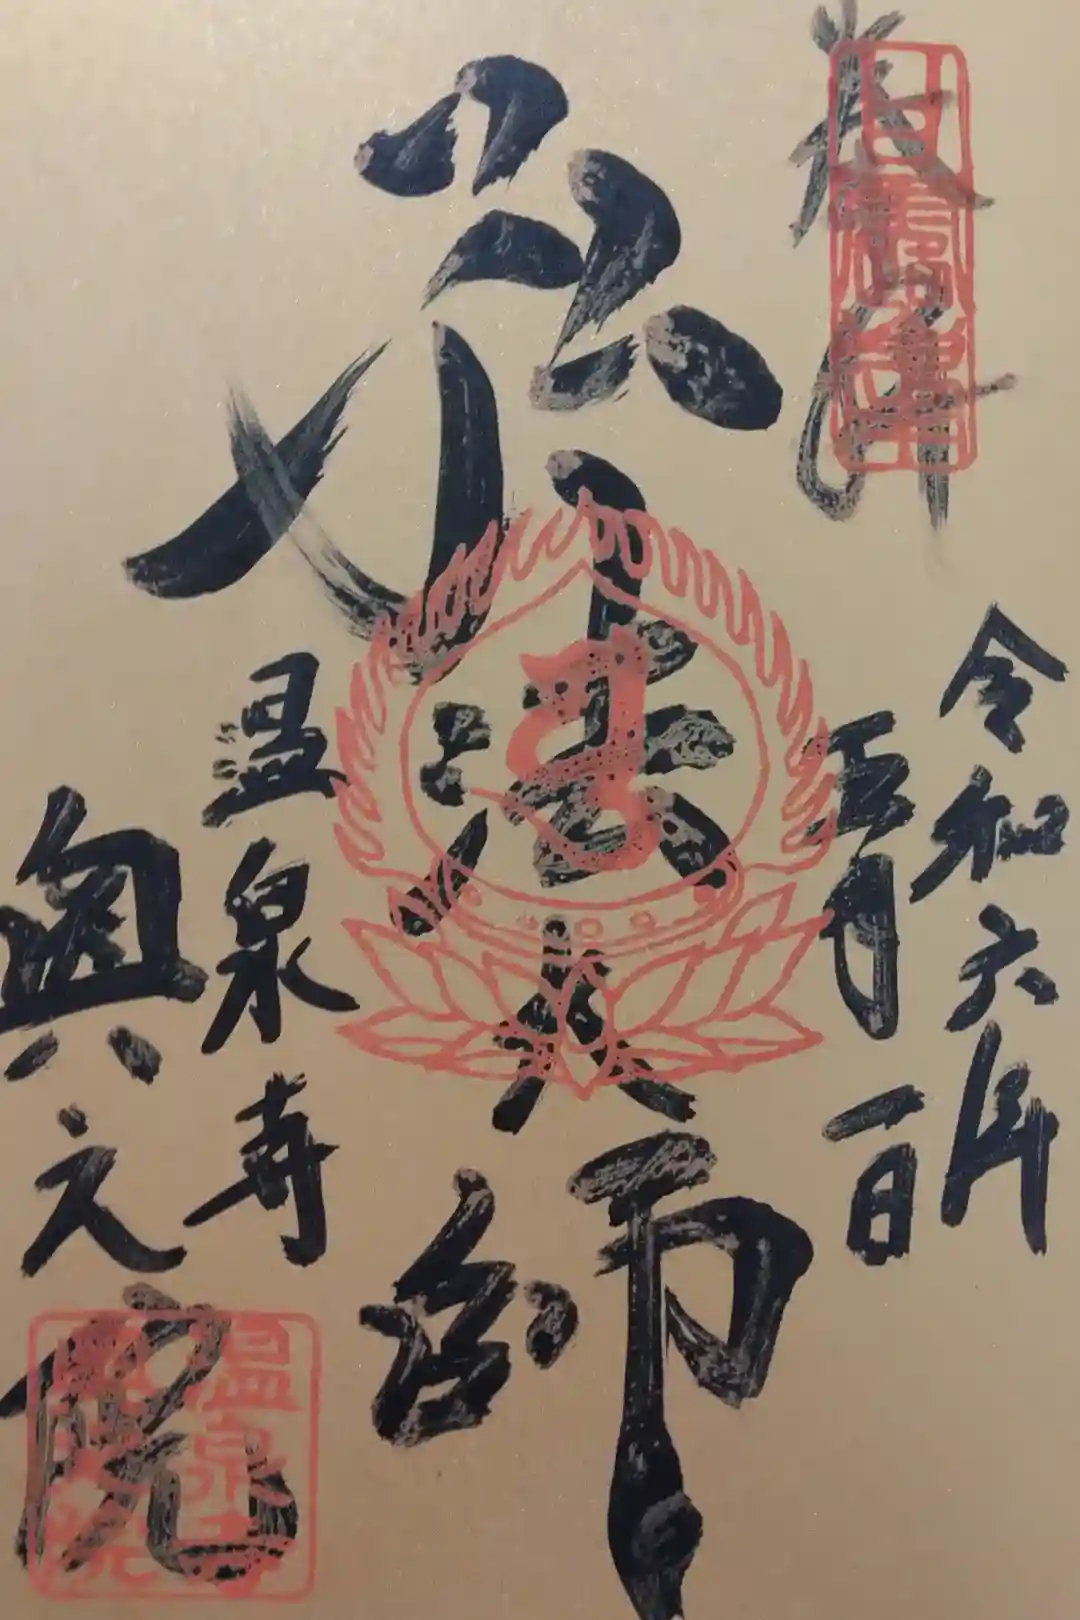 奉拝
令和六年
五月一日
法大師
温泉寺
奥之院
温泉寺